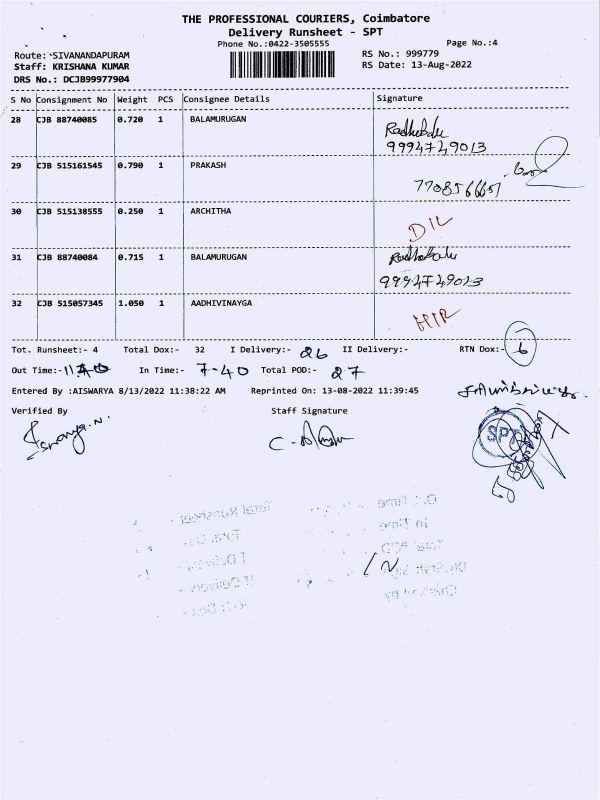 THE PROFESSIONAL COURIERS, Coimbatore
Delivery Runsheet - SPT
Phone No.:0422-3505555 Page No.:4
Route: SIVANANDAPURAM RS No.: 999779
Staff: KRISHANA KUMAR RS Date: 13-Aug-2022
DRS No.: DCJB99977904
S No Consignment No Weight PCS Consignee Details Signature
28 CJB 88740085 0.720 1 BALAMURUGAN
9994749013
29 CJB 515161545 0.790 1 PRAKASH
30 CJB 515138555 0.250 1 ARCHITHA
D/L
31 CJB 88740084 0.715 1 BALAMURUGAN
9994749013
32 CJB 515057345 1.050 1 AADHIVINAYGA
Tot. Runsheet:- 4 Total Dox:- 32 I Delivery:- 26 II Delivery:- RTN Dox:- 6
Out Time:- In Time:- 7-40 Total POD:- 27
Entered By :AISWARYA 8/13/2022 11:38:22 AM Reprinted On: 13-08-2022 11:39:45
Verified By Staff Signature
SPT